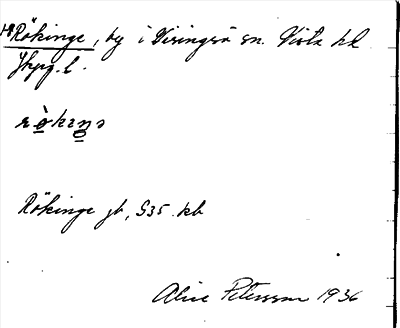 Rökinge, by i Visingsö sn. Vista hd
Jkpg. l.
rökiŋə
Rökinge jb, S35. kb
Alice Petersson 1936